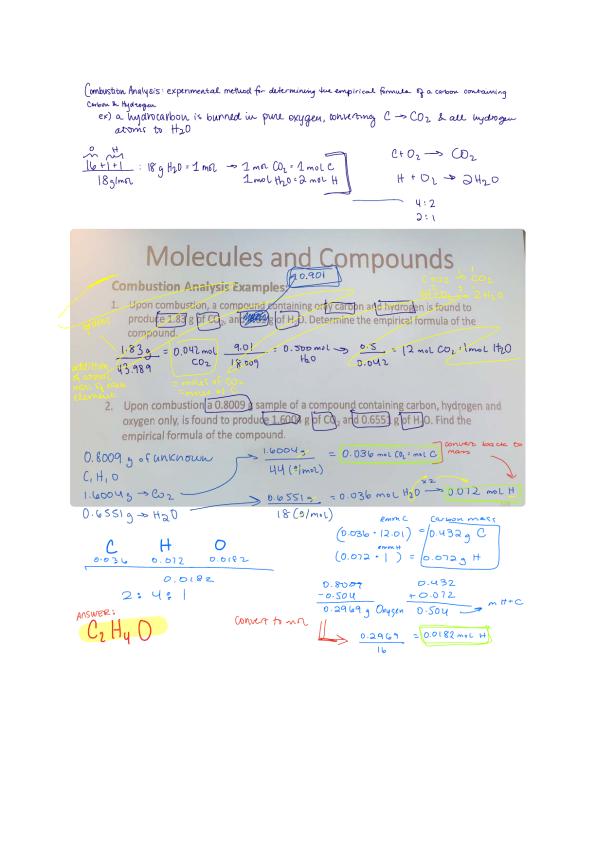 Combustion Analysis: experimental method for determining the empirical formula of a carbon containing
Carbon & Hydrogen
ex) a hydrocarbon is burned in pure oxygen, converting C → CO2 & all hydrogen
atoms to H2O
O H
16+1+1
18g/mol
: 18g H2O = 1 mol → 1 mol CO2 = 1 mol C
1 mol H2O = 2 mol H
C + O2 → CO2
H + O2 → 2H2O
4:2
2:1
Molecules and Compounds
0.901
Combustion Analysis Examples
1. Upon combustion, a compound containing only carbon and hydrogen is found to
produce 1.83 g of CO2, and g of H2O. Determine the empirical formula of the
compound.
1.83g
43.989
= 0.042 mol
CO2
9.01
18.009
= 0.500 mol
H2O
→
0.5
0.042
= 12 mol CO2 = 1 mol H2O
= moles of CO2
= moles of C
2. Upon combustion a 0.8009 g sample of a compound containing carbon, hydrogen and
oxygen only, is found to produce 1.6004 g of CO2 and 0.6551 g of H2O. Find the
empirical formula of the compound.
0.8009 g of unknown
C, H, O
1.6004g → CO2
0.6551g → H2O
1.6004g
44 (g/mol)
= 0.036 mol CO2 = mol C
convert back to
mass
0.6551g
18 (g/mol)
= 0.036 mol H2O
x2
→ 0.072 mol H
C H O
0.036 0.072 0.0182
0.0182
2 : 4 : 1
ANSWER:
C2H4O
Carbon mass
(0.036 · 12.01) = 0.432 g C
(0.072 · 1) = 0.072 g H
0.8009
-0.504
0.2969 g Oxygen
0.432
+ 0.072
0.504
→ m H+C
Convert to mol
0.2969
16
= 0.0182 mol H